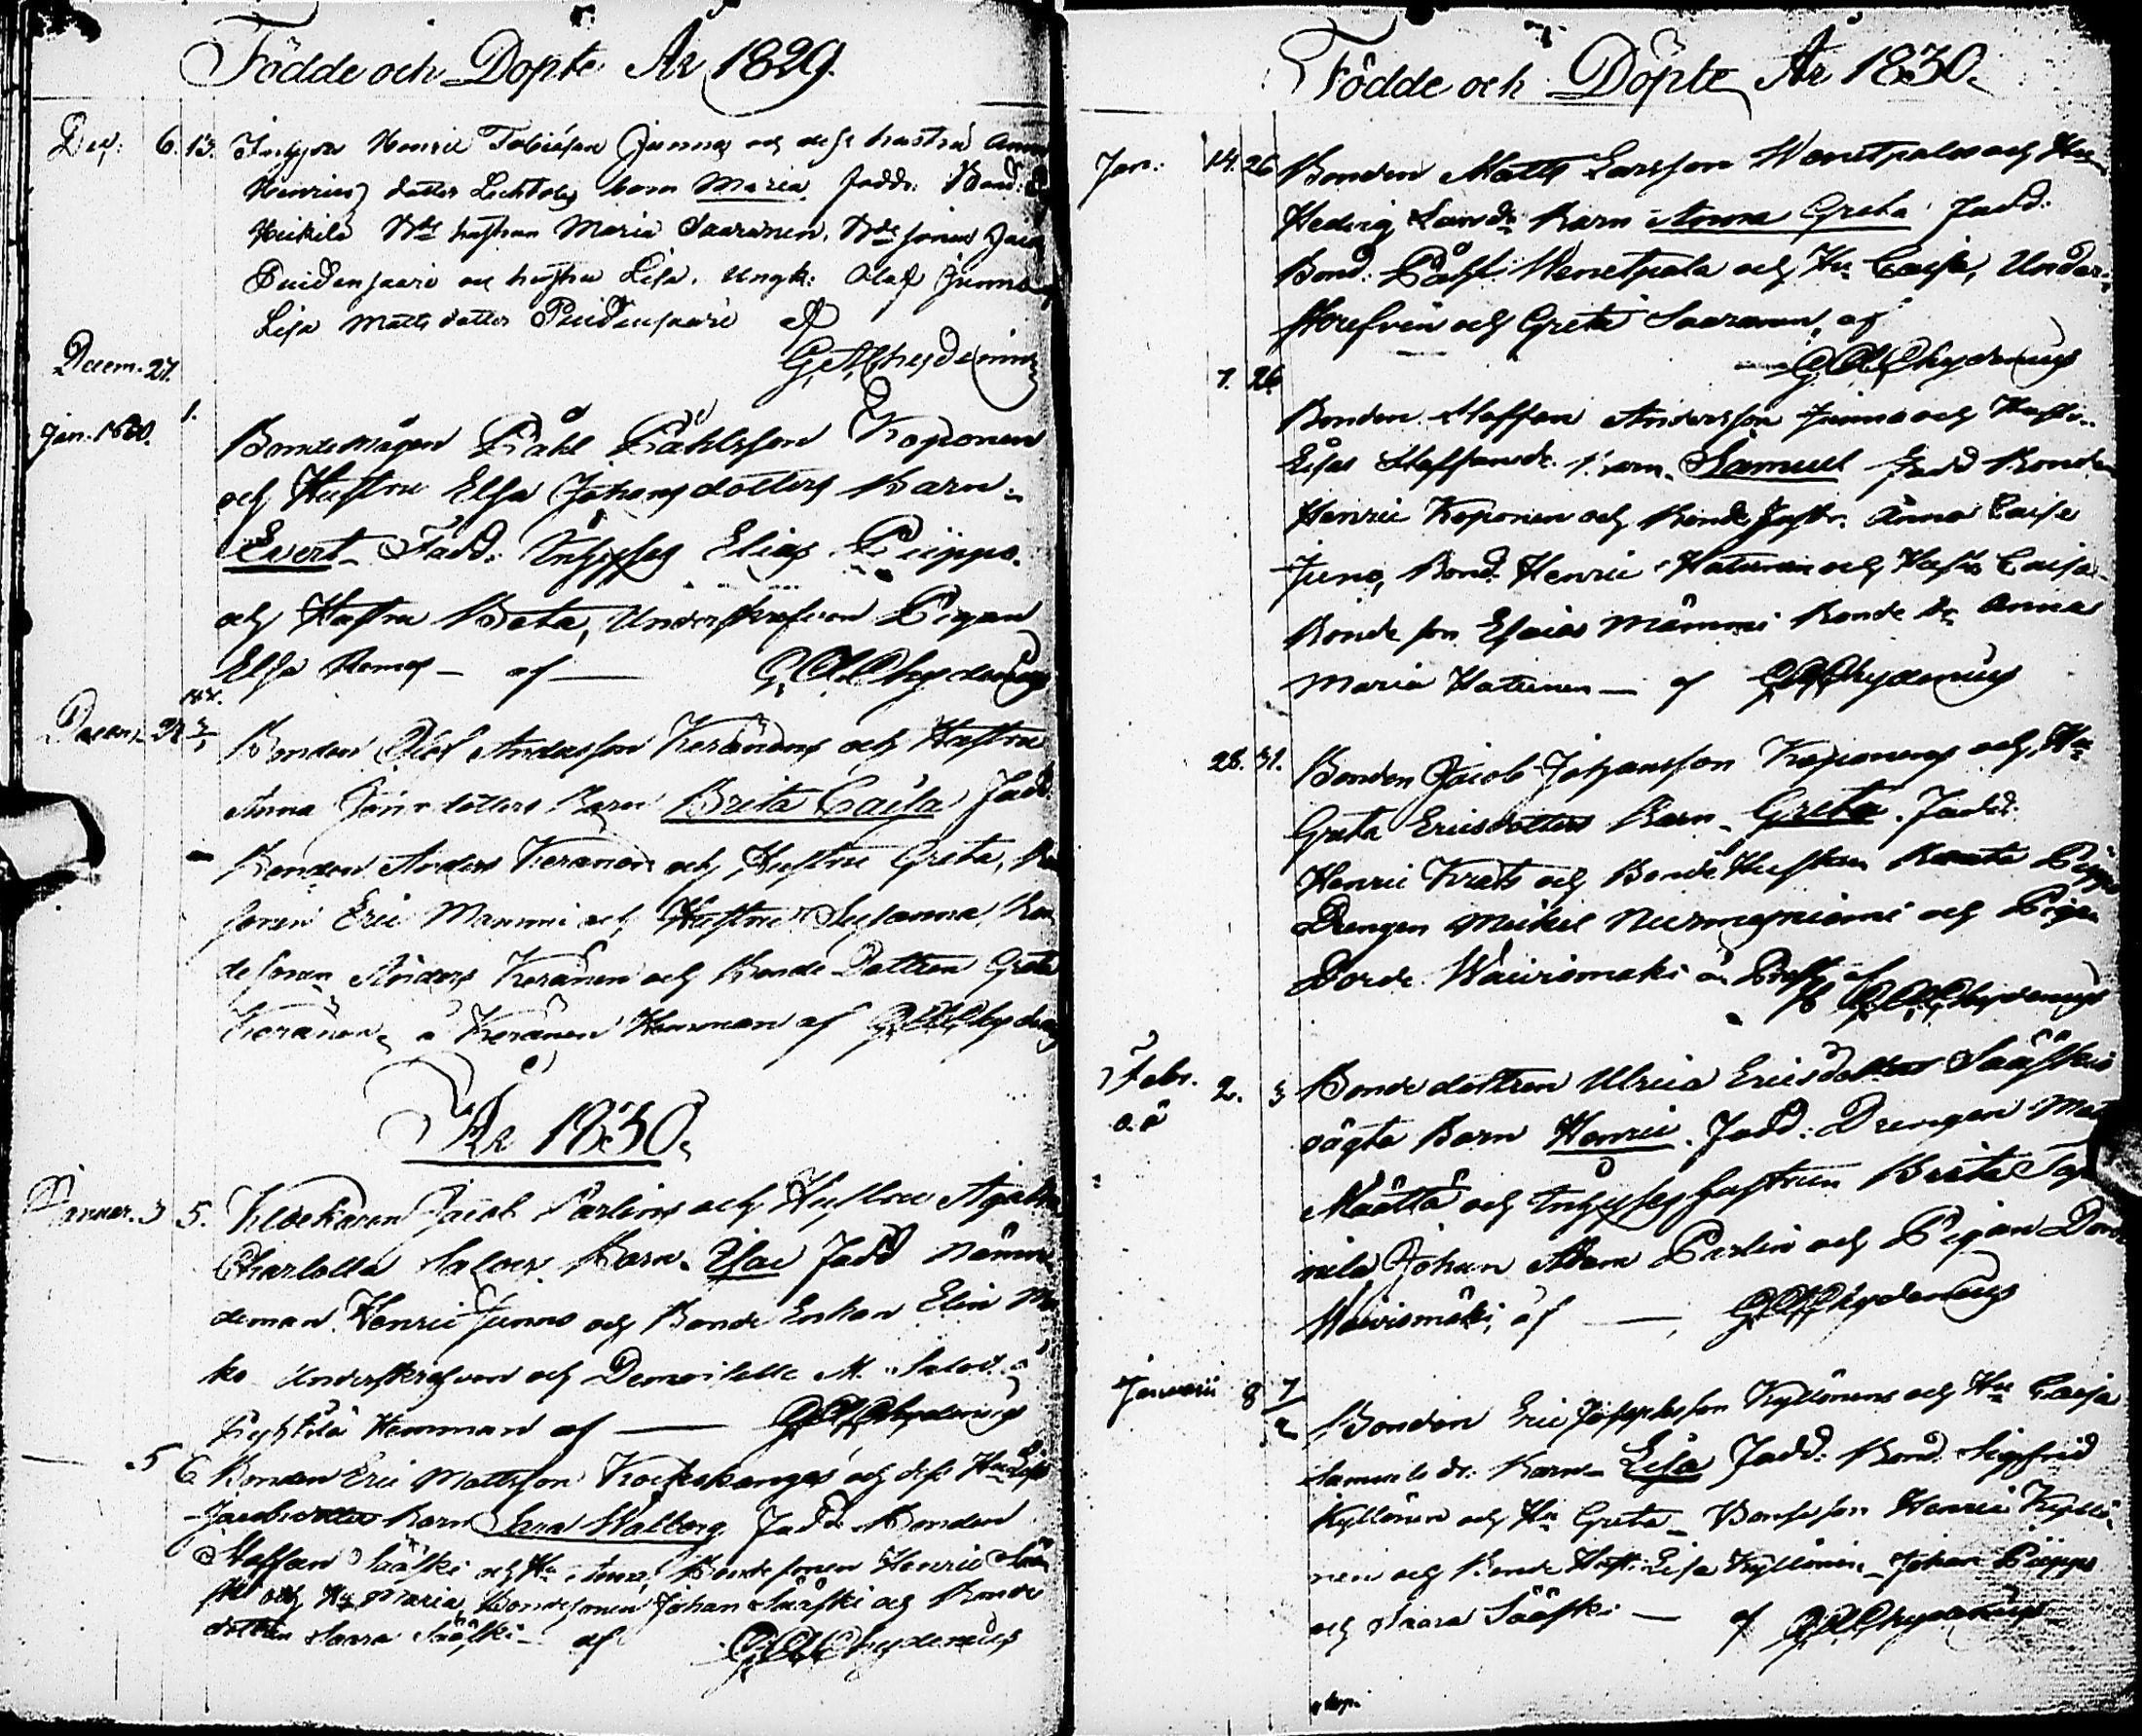 Födde och Döpte År 1829.
Dec: 6. 13. Inhyses Henric Tobiæson Junnos och dess hustru Anna
Henrics dotter barn Maria. Fadd: Bond:
Heikilä hustrun Maria Saaranen,
och hustru Lisa. Ungk: Olof Junno
Lisa Matts dotter af
G. A. Chydenius
Decem. 27.
Jan. 1830. 1. Bondemågen Påhl Påhlsson Koponen
och Hustru Elsa Johansdotters Barn
Evert - Fadd: Inhyses Elias Piippo
och Hustru Beata, Underskrefven Pigan
Elsa - af — G. A. Chydenius
Decem. 28 3/1 Bonden Olof Andersson Keränens och Hustru
Anna dotters Barn Brita Caisa Fadd:
Bonden Anders Keränen och Hustru Greta,
sonen Eric Mammi och Hustru Susanna, Bon
de sonen Anders Keränen och Bonde Dottren Greta
Keränen, å Keränen Hemman af G. A. Chydenius
År 1830.
Januar. 3 5. Jacob Parlins och Hustru Agatha
Charlotta Barn Isac Fadd Nämn
deman Henric Junno och Bonde Enkan Elin
Underskrefven och Demoiselle M.
Hemman af — G. A. Chydenius
5 6 Bonden Eric Mattsson och dess Hu Lisa
Jacobsdotters Barn Sara Walborg Fadd Bonden
Staffan Sääski och Hu Anna, Bondesonen Henric Sää
ski och Hu Maria Bondesonen Johan Sääski och Bonde
dottren Saara Sääski - af G. A. Chydenius
Födde och Döpte År 1830.
Jan: 14. 26 Bonden Matts Larsson Wenetpalos och Hu
Hedvig Larsdr Barn Anna Greta Fadd:
Bond: Påhl Wenetpalo och Hu Caisa, Under-
skrefven och Greta Saaranen, af
G. A. Chydenius
7. 26 Bonden Staffan Andersson Junno och Hustru
Lisas Staffansdr. Barn Samuel Fadd Bonden
Henric Koponen och Bonde hustr. Anna Caisa
Juno, Bond. Henric Hatunen och Hustr Caisa
Bonde son Esaias Mämmi Bonde dr Anna
Maria Hatunen — af G. A. Chydenius
28. 31. Bonden Jacob Johansson Koponens och Hu
Greta Ericsdotters Barn - Greta. Fadd:
Henric och Bonde Hustrun Beata Piippo
Drengen Mickel Nurmesniemi och Pigan
Dorde Wäirismäki af
G. A. Chydenius
Febr. 2. 3 Bonde dottren Ulrica Ericsdotter Sääskis
oägta Barn Henric. Fadd: Drengen
Määttä och Inhyses hustrun Brita
Johan Adam Parlin och Pigan
Wäirismäki, af — G. A. Chydenius
Januarii 8 7/2 Bonden Eric Josephsson Kyllönens och Hu Caisa
Samuels dr. Barn - Lisa Fadd: Bond. Sigfrid
Kyllönen och Hu Greta - Bonde son Henric Kyllö-
nen och Bonde Hust. Lisa Kyllönen - Johan Piippo
och Saara Sääski — af G. A. Chydenius